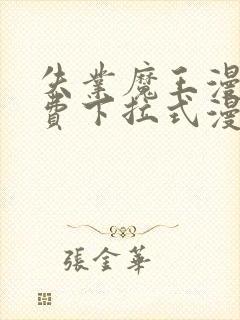 失業魔王漫
費下拉式漫
張金華